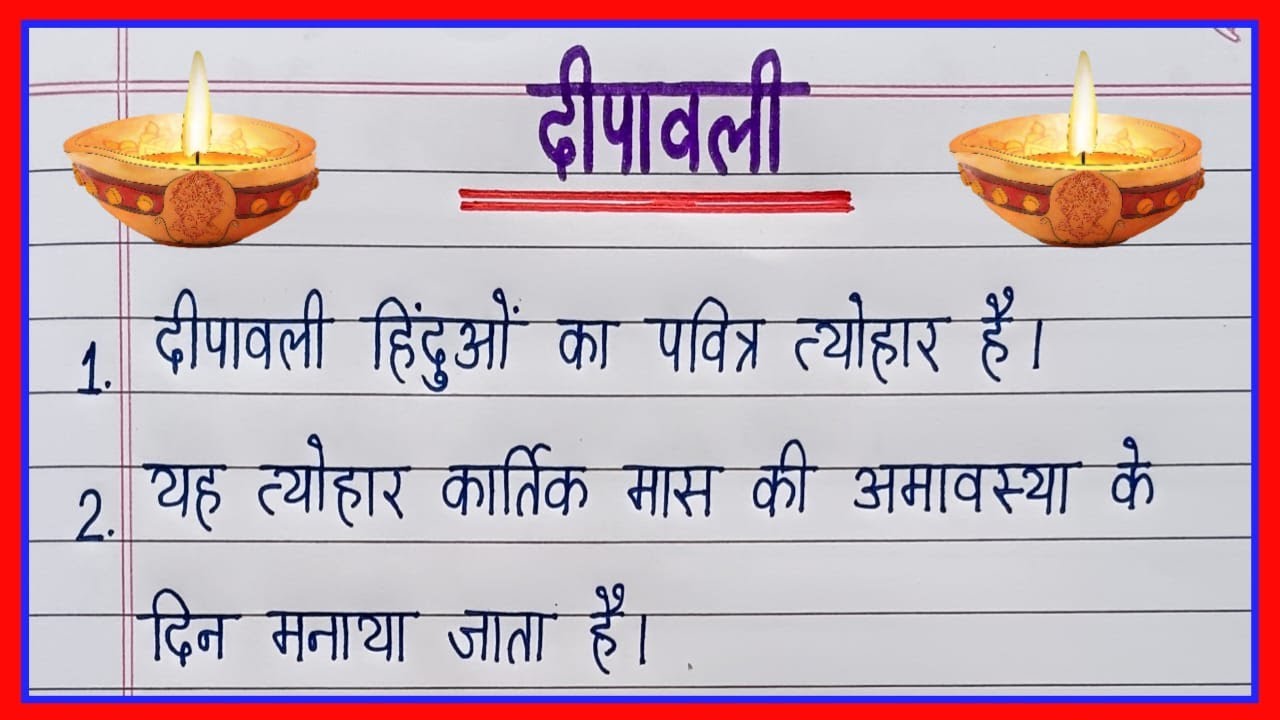 दीपावली
1. दीपावली हिंदुओं का पवित्र त्योहार है।
2. यह त्योहार कार्तिक मास की अमावस्या के
दिन मनाया जाता है।